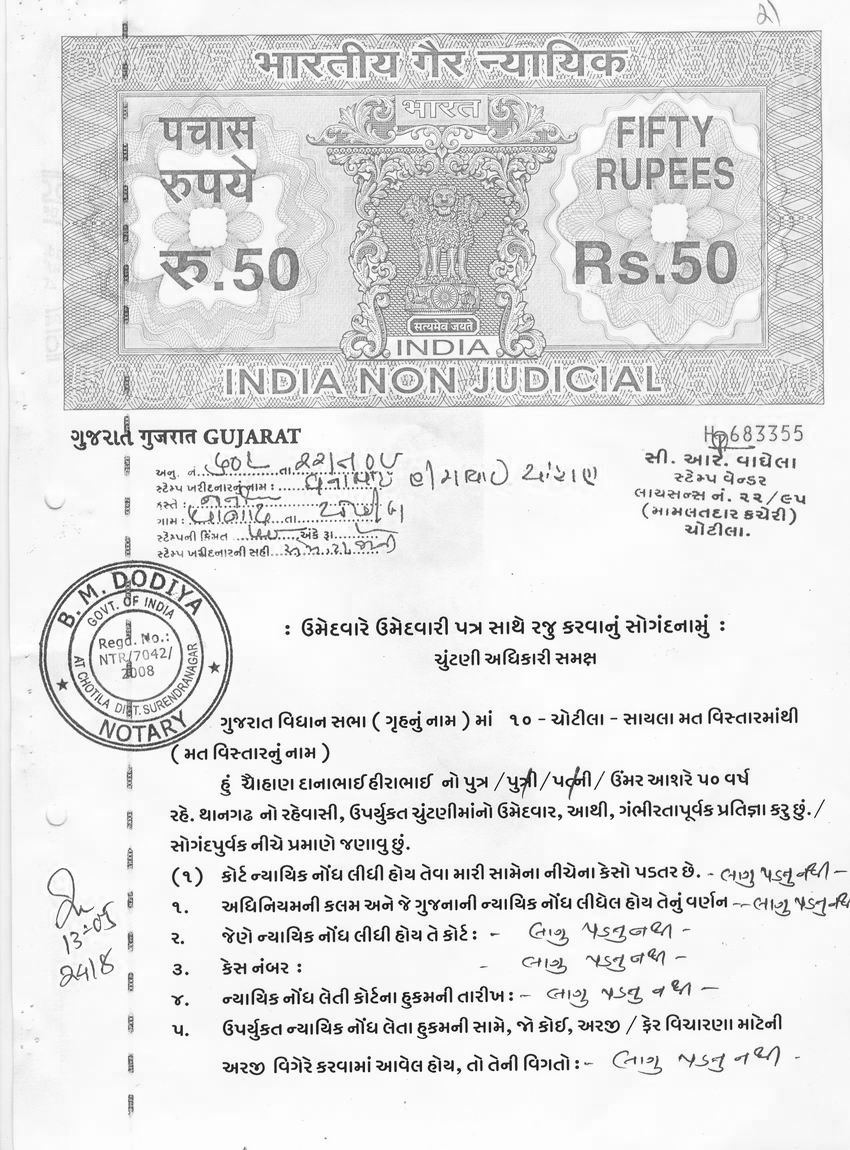 2)
भारतीय गैर न्यायिक
भारत
पचास
रुपये
रु.50
FIFTY
RUPEES
Rs.50
सत्यमेव जयते
INDIA
INDIA NON JUDICIAL
ગુજરાત गुजरात GUJARAT
683355
અનુ. નં. તા.
સ્ટેમ્પ ખરીદનારનું નામ :
કસ્તે :
ગામ : તા
સ્ટેમ્પની કિંમત અંકે રૂા
સ્ટેમ્પ ખરીદનારની સહી
સી. આર. વાઘેલા
સ્ટેમ્પ વેન્ડર
લાયસન્સ નં. ૨૨/૯૫
(મામલતદાર કચેરી)
ચોટીલા.
B. M. DODIYA
GOVT. OF INDIA
Regd. No.:
NTR/7042/
2008
AT CHOTILA DIST. SURENDRANAGAR
NOTARY
: ઉમેદવારે ઉમેદવારી પત્ર સાથે રજુ કરવાનું સોગંદનામું :
ચુંટણી અધિકારી સમક્ષ
ગુજરાત વિધાન સભા ( ગૃહનું નામ ) માં ૧૦ - ચોટીલા - સાયલા મત વિસ્તારમાંથી
( મત વિસ્તારનું નામ )
હું ચૈાહાણ દાનાભાઈ હીરાભાઈ નો પુત્ર / પુત્રી / પત્ની / ઉંમર આશરે ૫૦ વર્ષ
રહે. થાનગઢ નો રહેવાસી, ઉપર્યુકત ચુંટણીમાંનો ઉમેદવાર, આથી, ગંભીરતાપૂર્વક પ્રતિજ્ઞા કરુ છું. /
સોગંદપુર્વક નીચે પ્રમાણે જણાવુ છું.
(૧) કોર્ટ ન્યાયિક નોંધ લીધી હોય તેવા મારી સામેના નીચેના કેસો પડતર છે. - લાગુ પડતુ નથી -
૧. અધિનિયમની કલમ અને જે ગુજનાની ન્યાયિક નોંધ લીધેલ હોય તેનું વર્ણન - લાગુ પડતુ નથી
૨. જેણે ન્યાયિક નોંધ લીધી હોય તે કોર્ટ : - લાગુ પડતુ નથી -
૩. કેસ નંબર : - લાગુ પડતુ નથી -
૪. ન્યાયિક નોંધ લેતી કોર્ટના હુકમની તારીખ : - લાગુ પડતુ નથી -
૫. ઉપર્યુકત ન્યાયિક નોંધ લેતા હુકમની સામે, જો કોઈ, અરજી / ફેર વિચારણા માટેની
અરજી વિગેરે કરવામાં આવેલ હોય, તો તેની વિગતો : - લાગુ પડતુ નથી -
13:05